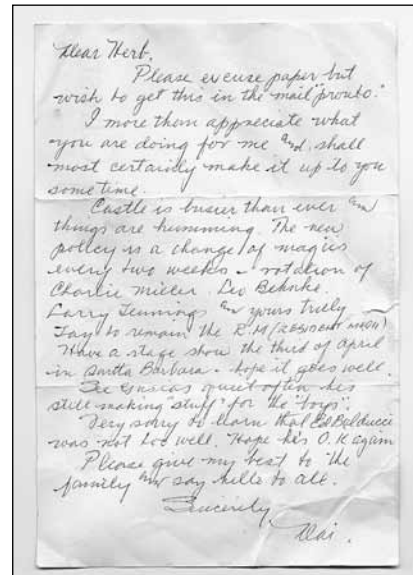 Dear Herb,
Please excuse paper but
wish to get this in the mail "pronto."
I more than appreciate what
you are doing for me and shall
most certainly make it up to you
some time.
Castle is busier than ever and
things are humming. The new
policy is a change of magis
every two weeks - rotation of
Charlie Miller, Leo Behnke,
Larry Jennings and yours truly
Jay to remain the R.M (RESIDENT MAGI)
Have a stage show the third of April
in Santa Barbara - hope it goes well.
See quiet often his
still making "stuff" for the "boys".
Very sorry to learn that Ed Balducci
was not too well. Hope his O.K again
Please give my best to the
family and say hello to all.
Sincerely
Dai.